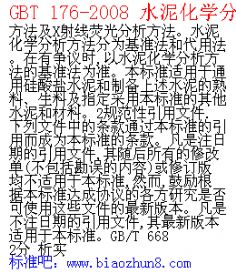 GBT 176-2008 水泥化学分
方法及X射线荧光分析方法。水泥
化学分析方法分为基准法和代用法
。在有争议时,以水泥化学分析方
法的基准法为准。本标准适用于通
用硅酸盐水泥和制备上述水泥的熟
料、生料及指定采用本标准的其他
水泥和材料。2规范性引用文件.
下列文件中的条款通过本标准的引
用而成为本标准的条款。凡是注日
期的引用文件,其随后所有的修改
单(不包括勘误的内容)或修订版
均不适用于本标准,然而,鼓励根
据本标准达成协议的各方研究是否
可使用这些文件的最新版本。凡是
不注日期的引用文件,其最新版本
适用于本标准。GB/T 668
2分 析实
标准吧:www.biaozhun8.com